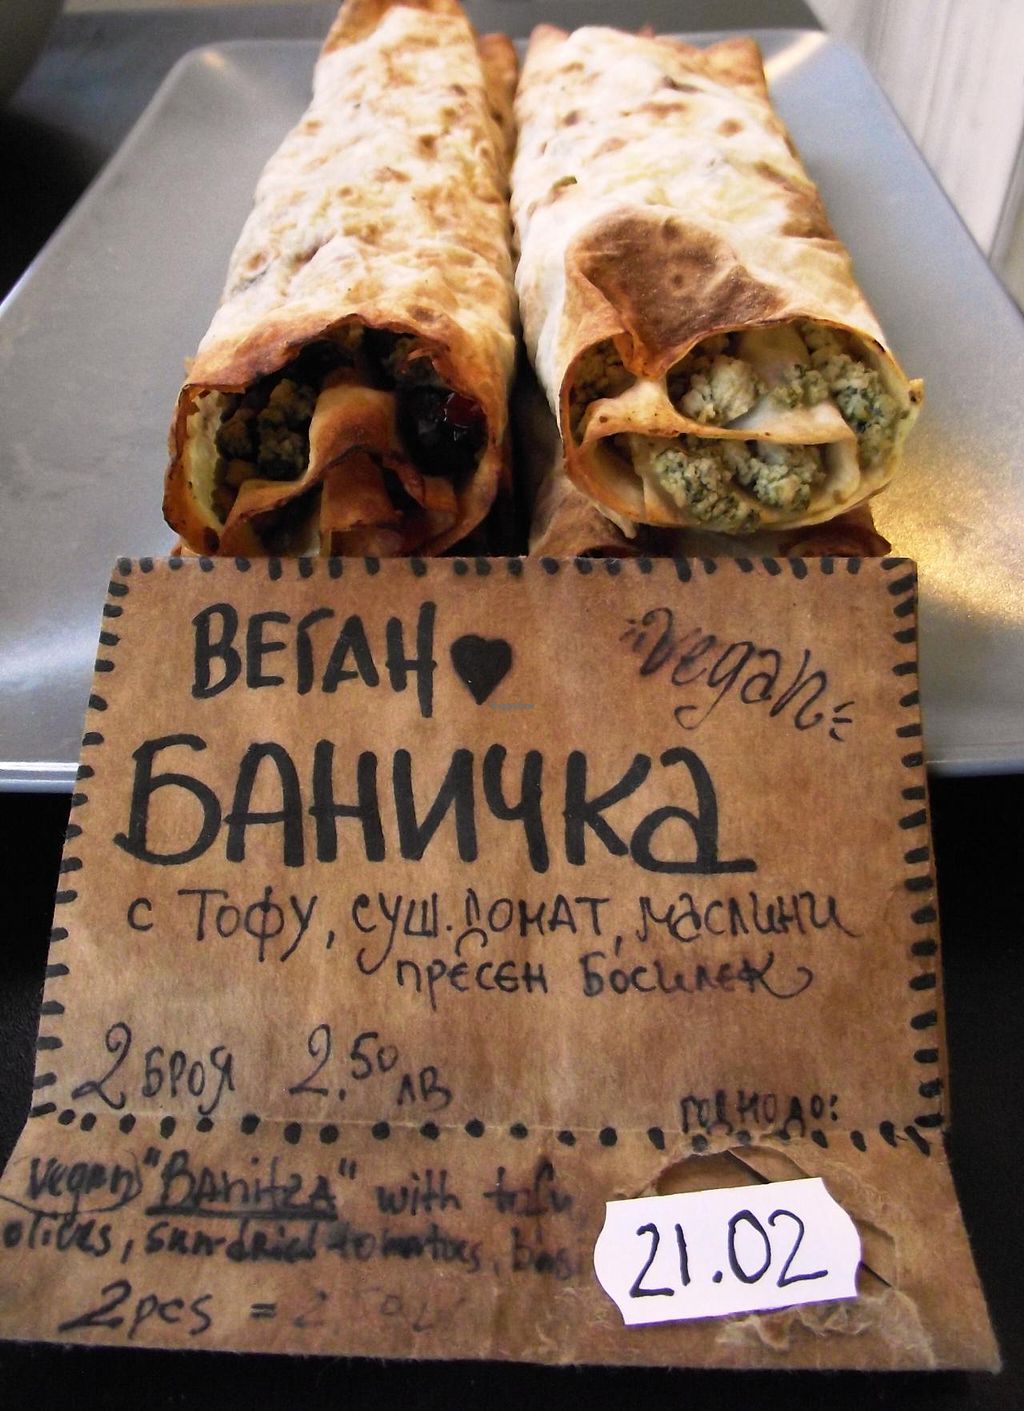 ВЕГАН
vegan
БАНИЧКА
с ТОФУ, СУШ. ДОМАТ, МАСЛИНИ
ПРЕСЕН БОСИЛЕК
2 БРОЯ 2.50 ЛВ
ГОДНО ДО:
vegan "BAnitzA" with tofu
olives, sun-dried tomatoes,
2 pcs =
21.02